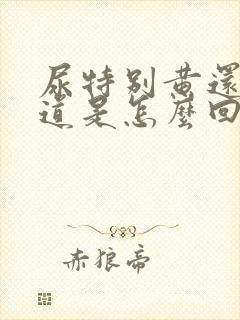 尿特别黄還
道是怎麼回
赤狼帝